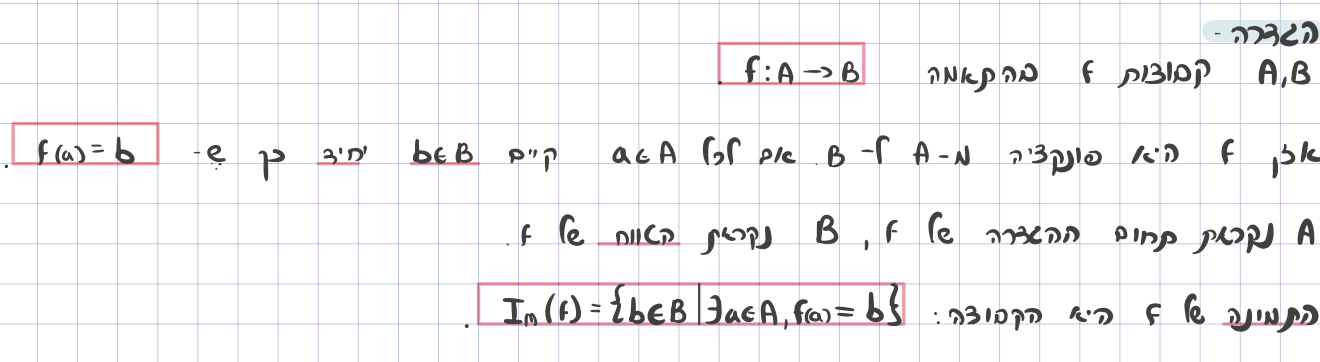 הגדרה -
A,B קבוצות f בהתאמה f:A→B.
אזן f היא פונקציה מ-A ל-B אם לכל a∈A קיים b∈B יחיד כך ש- f(a)=b.
A נקראת תחום ההגדרה של f, B נקראת הטווח של f.
התמונה של f היא הקבוצה: Im(f)={b∈B|∃a∈A,f(a)=b}.